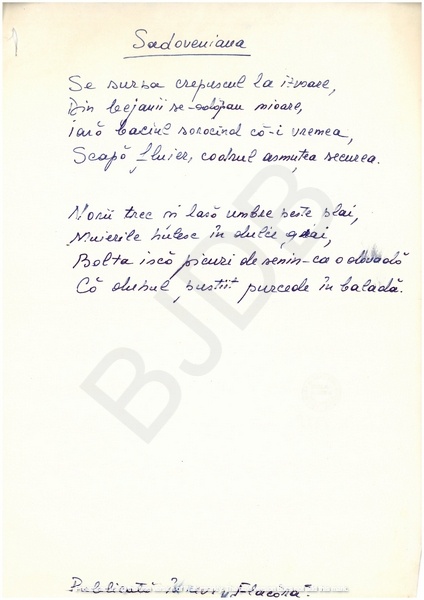 Sadoveniana
Se surpa crepuscul la izvoare,
Din bejanii se-adăpau mioare,
Iară baciul sorocind că-i vremea,
Scapă fluier, codrul asmuțea securea.
Norii trec și lasă umbre peste plai,
Muierile húlesc în dulce grai,
Bolta iscă picuri de senin-ca o dovadă
Că duhul pustiit purcede în baladă.
Publicată în rev. "Flacăra".
BJDB